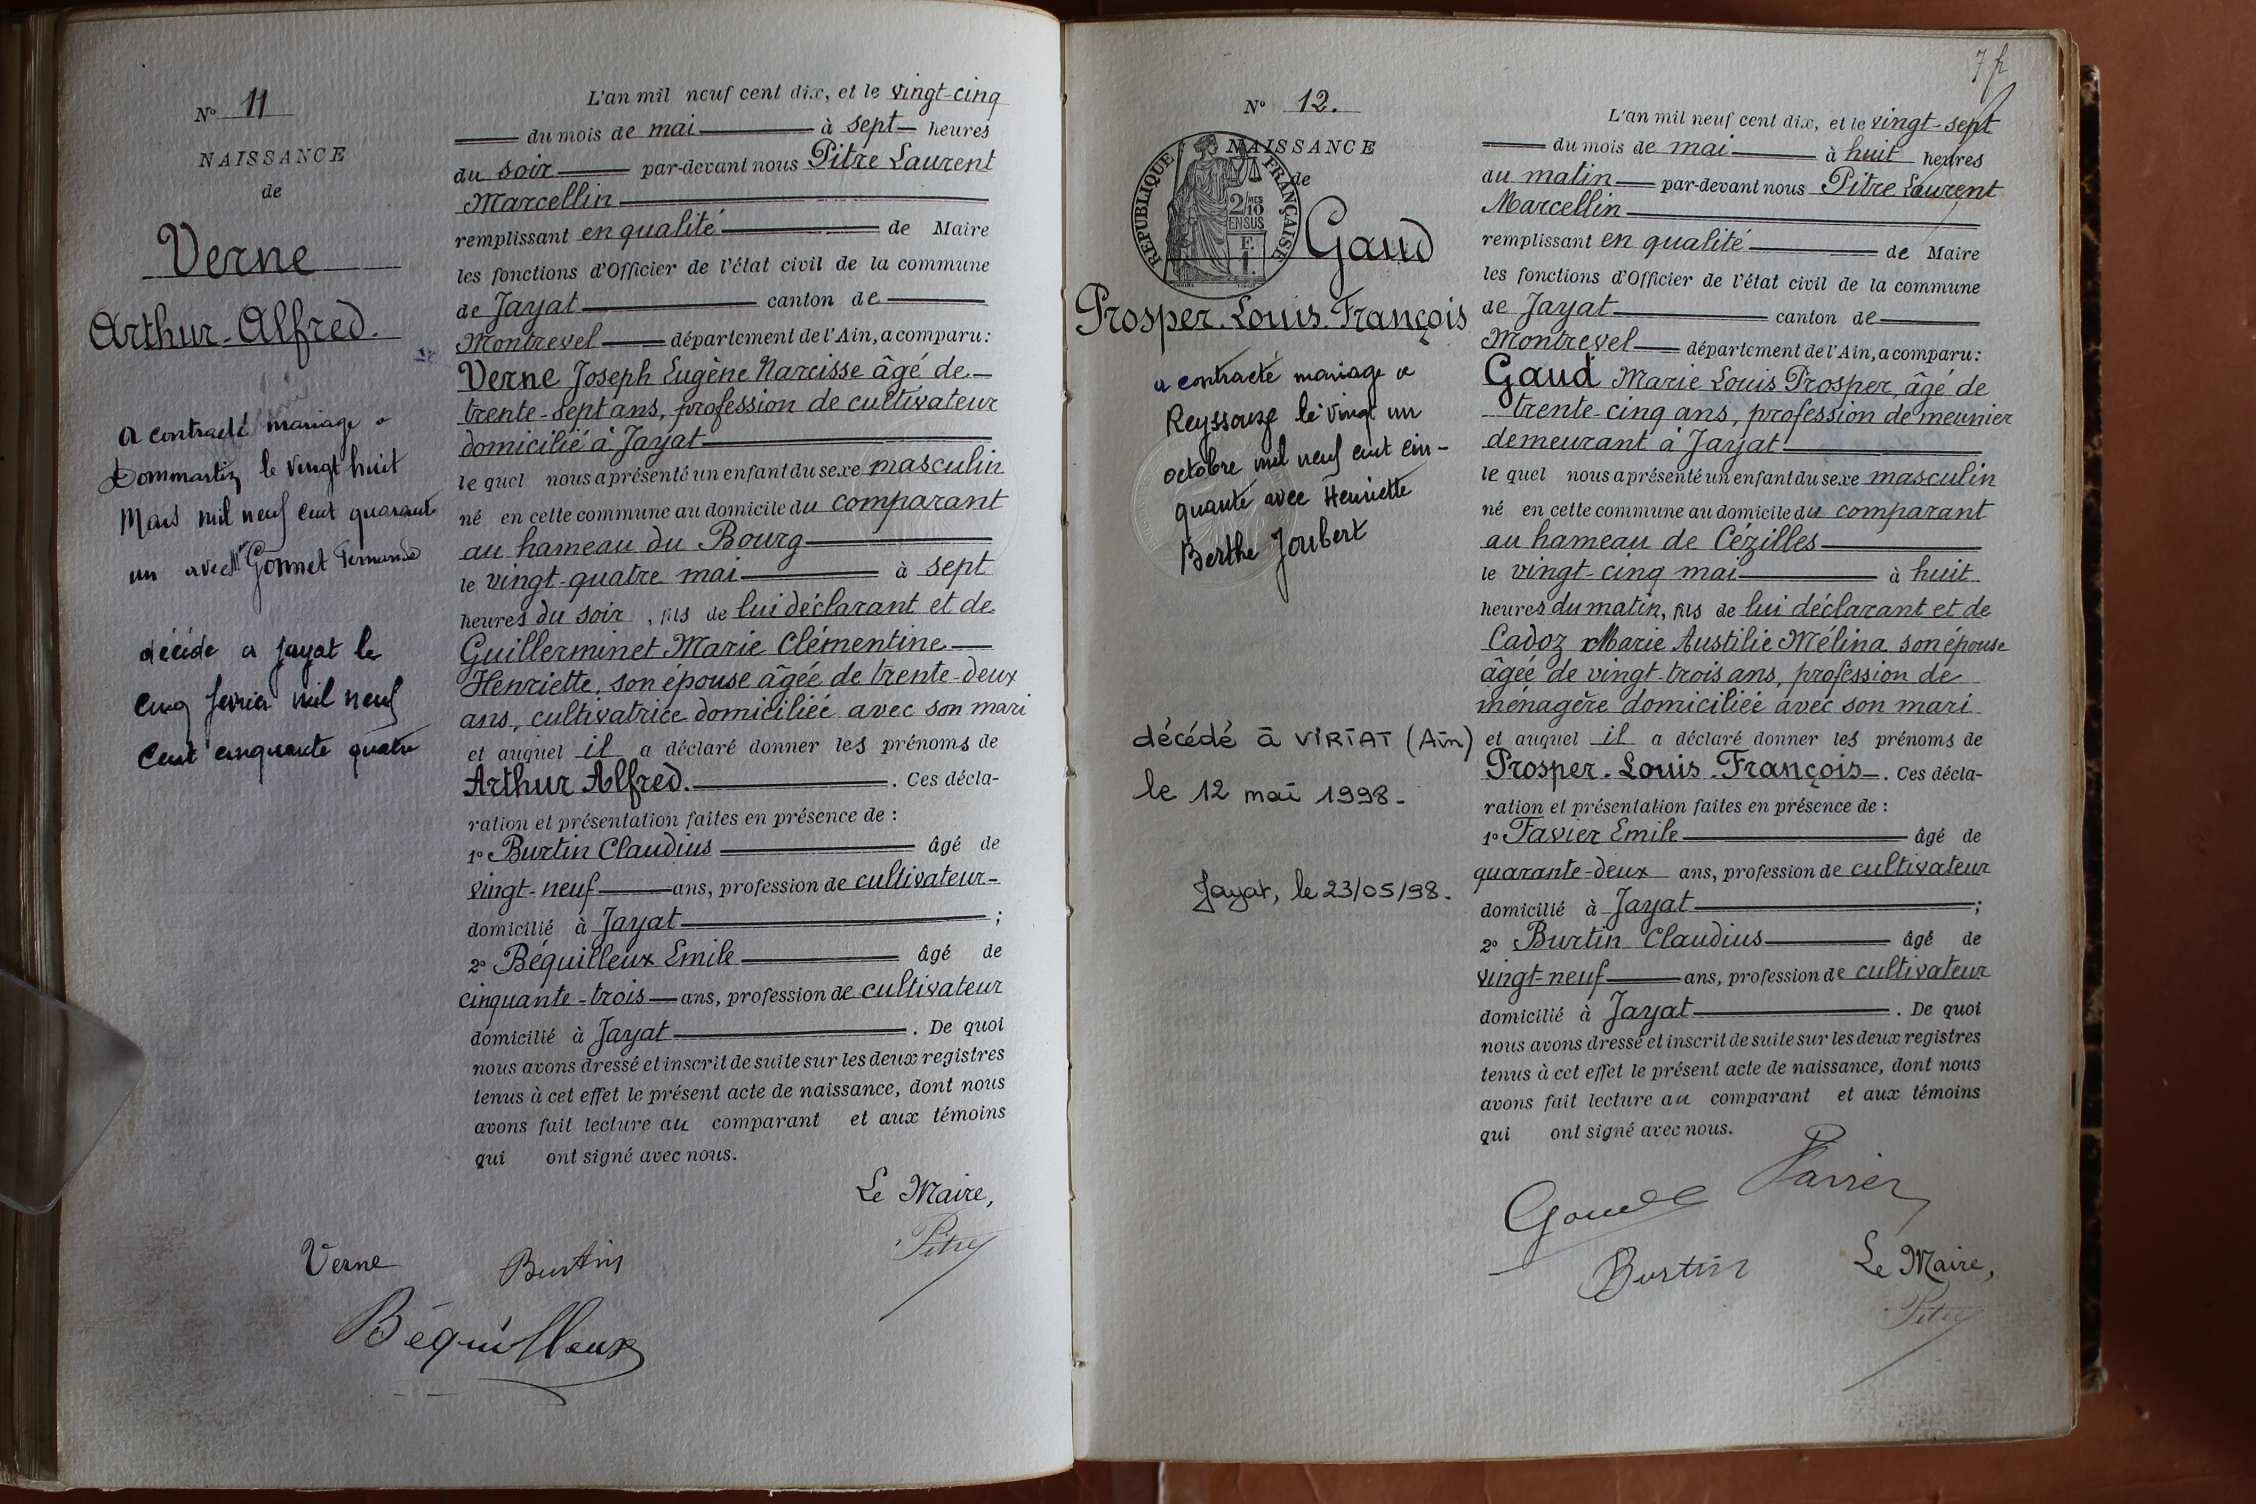 N° 11
NAISSANCE
de
Verne
Arthur-Alfred.
a contracté mariage a
Dommartin le vingt huit
Mars mil neuf cent quarante
un avec Gonnet Fernande
décédé a Jayat le
cinq fevrier mil neuf
cent cinquante quatre
L'an mil neuf cent dix, et le vingt-cinq
du mois de mai à sept heures
du soir par-devant nous Pitre Laurent
Marcellin
remplissant en qualité de Maire
les fonctions d'Officier de l'état civil de la commune
de Jayat canton de
Montrevel département de l'Ain, a comparu:
Verne Joseph Eugène Narcisse âgé de
trente-sept ans, profession de cultivateur
domicilié à Jayat
le quel nous a présenté un enfant du sexe masculin
né en cette commune au domicile du comparant
au hameau du Bourg
le vingt-quatre mai à sept
heures du soir, fils de lui déclarant et de
Guillerminet Marie Clémentine
Henriette, son épouse âgée de trente-deux
ans, cultivatrice domiciliée avec son mari
et auquel il a déclaré donner les prénoms de
Arthur Alfred. . Ces décla-
ration et présentation faites en présence de :
1° Burtin Claudius âgé de
vingt-neuf ans, profession de cultivateur-
domicilié à Jayat ;
2° Béquilleux Emile âgé de
cinquante-trois ans, profession de cultivateur
domicilié à Jayat . De quoi
nous avons dressé et inscrit de suite sur les deux registres
tenus à cet effet le présent acte de naissance, dont nous
avons fait lecture au comparant et aux témoins
qui ont signé avec nous.
Le Maire,
Pitre
Verne Burtin
Béquilleux
7 f
N° 12.
NAISSANCE
de
REPUBLIQUE FRANÇAISE
2/10 MES
EN SUS
F.
1.
Gaud
Prosper-Louis-François
a contracté mariage a
Reyssouze le vingt un
octobre mil neuf cent cin-
quante avec Henriette
Berthe Joubert
décédé à VIRIAT (Ain)
le 12 mai 1998-
Jayat, le 23/05/98.
L'an mil neuf cent dix, et le vingt-sept
du mois de mai à huit heures
du matin par-devant nous Pitre Laurent
Marcellin
remplissant en qualité de Maire
les fonctions d'Officier de l'état civil de la commune
de Jayat canton de
Montrevel département de l'Ain, a comparu:
Gaud Marie Louis Prosper, âgé de
trente-cinq ans, profession de meunier
demeurant à Jayat
le quel nous a présenté un enfant du sexe masculin
né en cette commune au domicile du comparant
au hameau de Cézilles
le vingt-cinq mai à huit
heures du matin, fils de lui déclarant et de
Cadoz Marie Austilie Mélina son épouse
âgée de vingt-trois ans, profession de
ménagère domiciliée avec son mari
et auquel il a déclaré donner les prénoms de
Prosper-Louis-François. Ces décla-
ration et présentation faites en présence de :
1° Favier Emile âgé de
quarante-deux ans, profession de cultivateur
domicilié à Jayat ;
2° Burtin Claudius âgé de
vingt-neuf ans, profession de cultivateur
domicilié à Jayat . De quoi
nous avons dressé et inscrit de suite sur les deux registres
tenus à cet effet le présent acte de naissance, dont nous
avons fait lecture au comparant et aux témoins
qui ont signé avec nous.
Gaud Favier
Burtin Le Maire,
Pitre